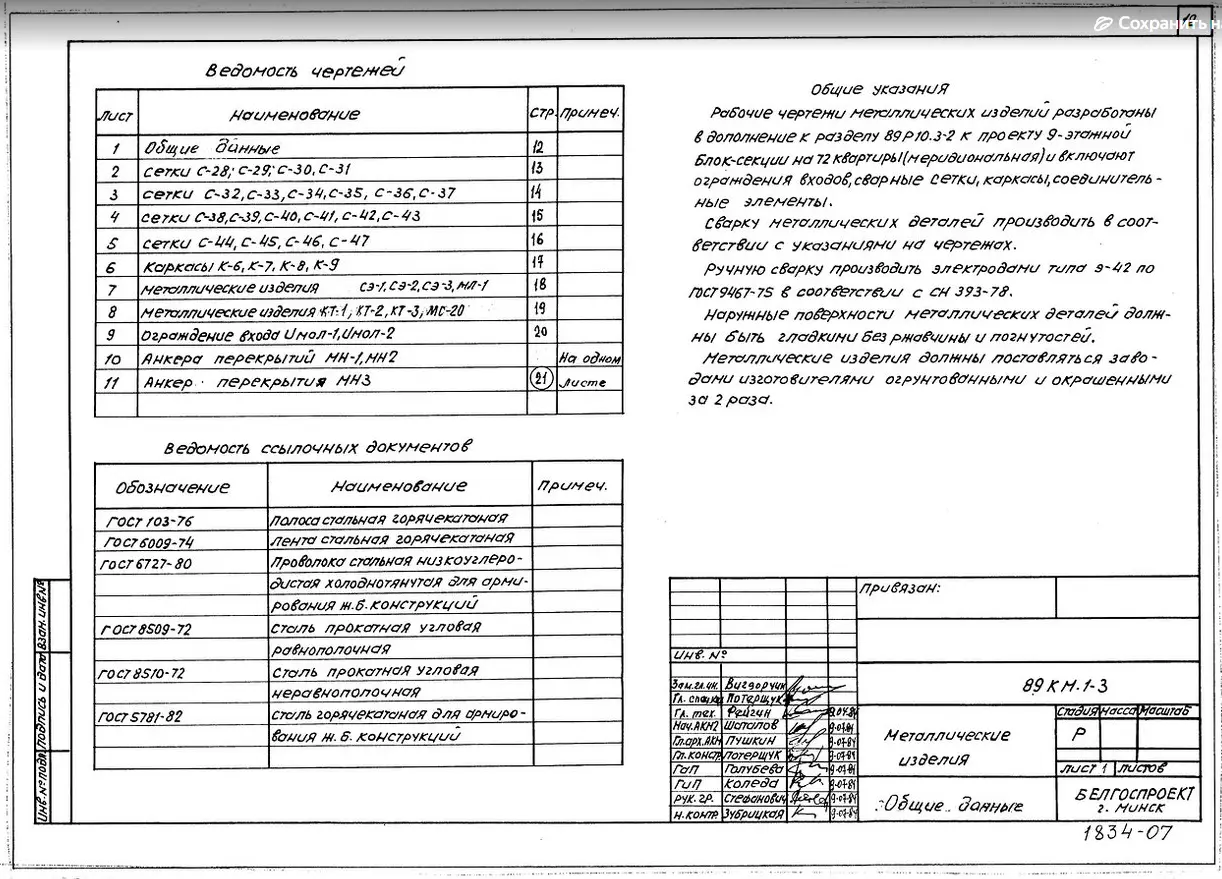 Сохранить на
12
Ведомость чертежей
Лист Наименование Стр. Примеч.
1 Общие данные 12
2 Сетки С-28; С-29; С-30, С-31 13
3 Сетки С-32, С-33, С-34, С-35, С-36, С-37 14
4 Сетки С-38, С-39, С-40, С-41, С-42, С-43 15
5 Сетки С-44, С-45, С-46, С-47 16
6 Каркасы К-6, К-7, К-8, К-9 17
7 Металлические изделия СЭ-1, СЭ-2, СЭ-3, МЛ-1 18
8 Металлические изделия КТ-1, КТ-2, КТ-3, МС-20 19
9 Ограждение входа Имол-1, Имол-2 20
10 Анкера перекрытий МН-1, МН2 На одном
11 Анкер перекрытия МН3 21 листе
Ведомость ссылочных документов
Обозначение Наименование Примеч.
ГОСТ 103-76 Полоса стальная горячекатаная
ГОСТ 6009-74 Лента стальная горячекатаная
ГОСТ 6727-80 Проволока стальная низкоуглеро-
дистая холоднотянутая для арми-
рования ж.б. конструкций
ГОСТ 8509-72 Сталь прокатная угловая
равнополочная
ГОСТ 8510-72 Сталь прокатная угловая
неравнополочная
ГОСТ 5781-82 Сталь горячекатаная для армиро-
вания ж.б. конструкций
Общие указания
Рабочие чертежи металлических изделий разработаны
в дополнение к разделу 89Р10.3-2 к проекту 9-этажной
блок-секции на 72 квартиры (меридиональная) и включают
ограждения входов, сварные сетки, каркасы, соединитель-
ные элементы.
Сварку металлических деталей производить в соот-
ветствии с указаниями на чертежах.
Ручную сварку производить электродами типа Э-42 по
ГОСТ 9467-75 в соответствии с СН 393-78.
Наружные поверхности металлических деталей долж-
ны быть гладкими без ржавчины и погнутостей.
Металлические изделия должны поставляться заво-
дами изготовителями огрунтованными и окрашенными
за 2 раза.
Привязан:
Инв. №
Зам.гл.ин. Вигдорчик
Гл. спец. Потерщук
Гл. тех. Рейгин 9.07.84
Нач.АКМ2 Шаталов 9.07.84
Гл.арх.АКМ Пушкин 9.07.84
Гл.констр. Потерщук 9.07.84
ГАП Голубева 9.07.84
ГИП Коледа 9.07.84
Рук. гр. Стефанович 9.07.84
Н.контр. Зубрицкая 9.07.84
89 КМ.1-3
Металлические
изделия
Стадия Масса Масштаб
Р
Лист 1 Листов
Общие данные
БЕЛГОСПРОЕКТ
г. Минск
1834-07
Инв.№ подл. Подпись и дата Взам.инв№